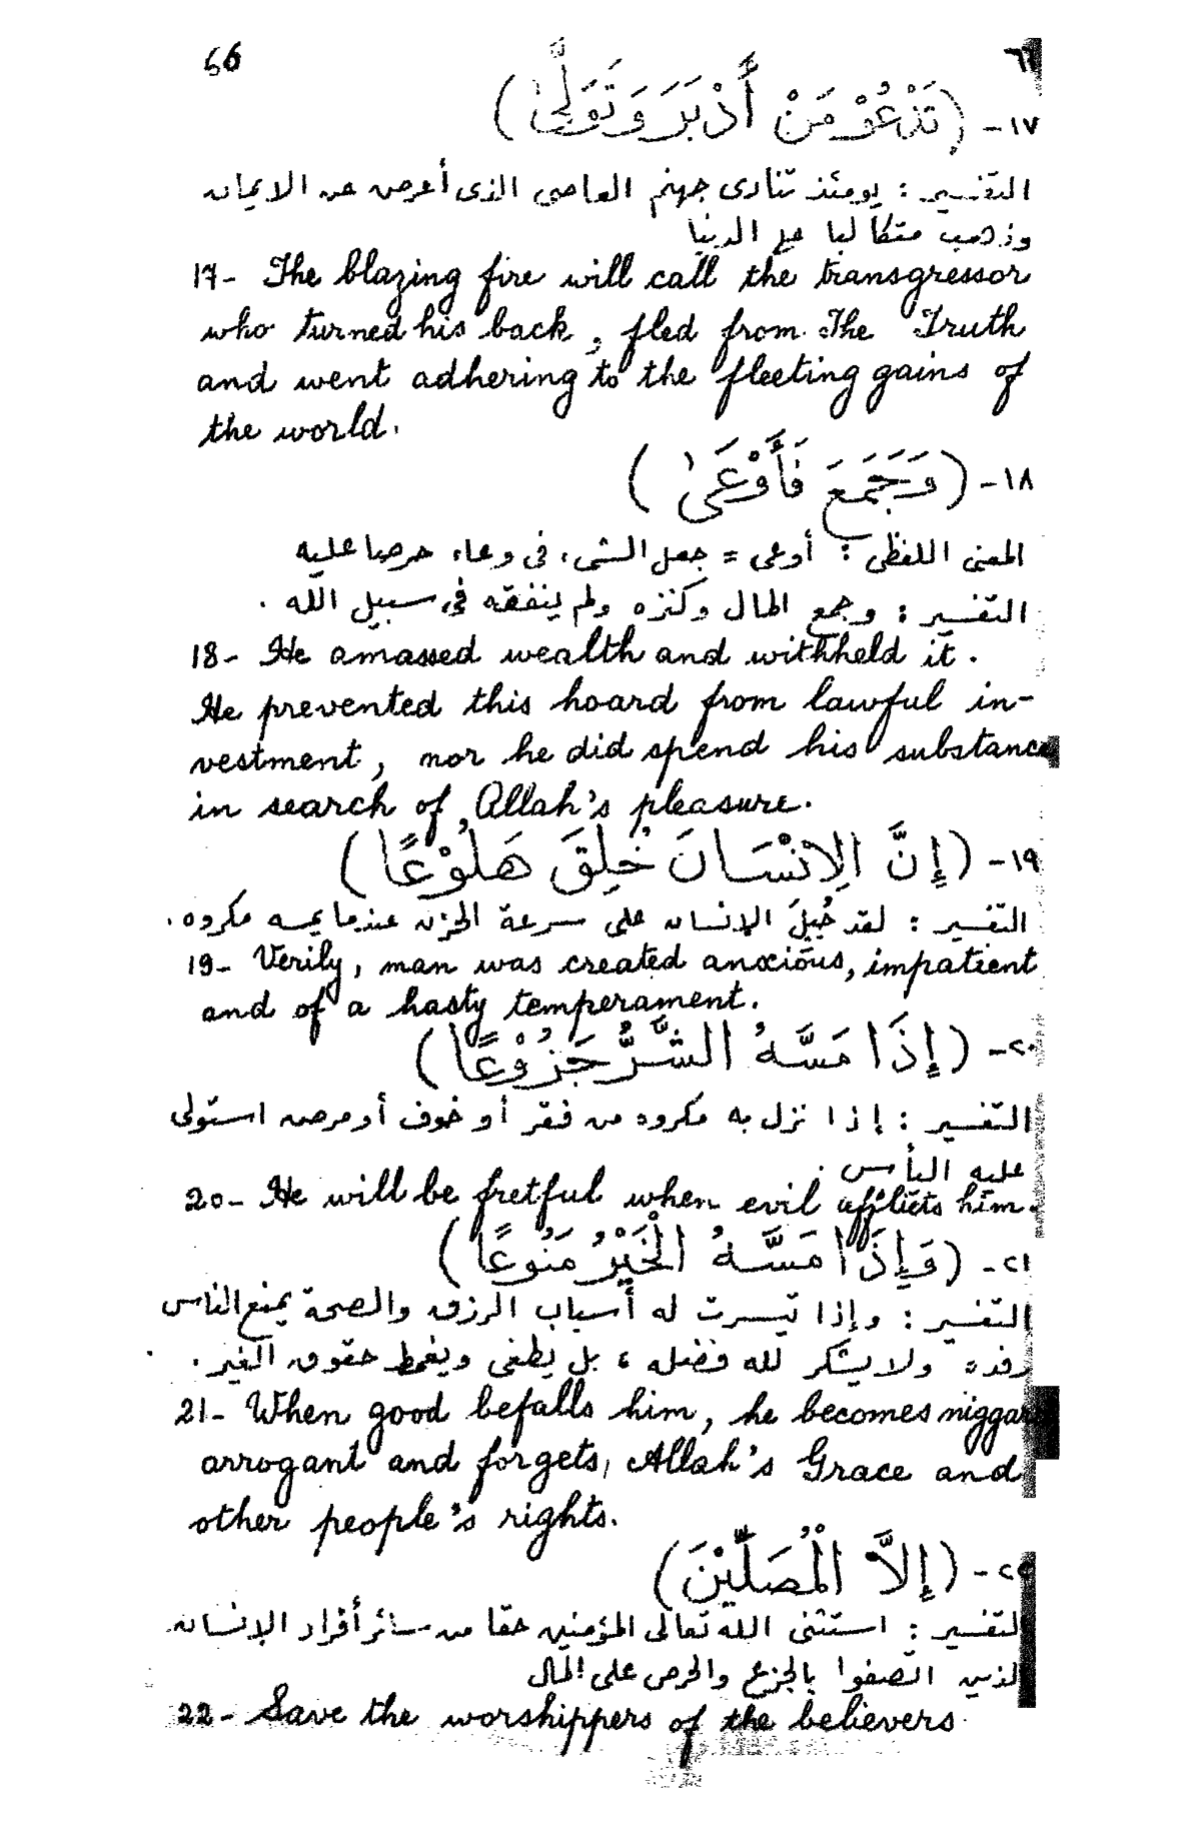 66 ٦٦
١٧- (تَدْعُوْ مَنْ أَدْبَرَ وَتَوَلَّىٰ)
التفسير : يومئذ تنادى جهنم العاصى الذى أعرض عن الايمان
وذهب متكالبا على الدنيا
17- The blazing fire will call the transgressor
who turned his back, fled from The Truth
and went adhering to the fleeting gains of
the world.
١٨- (وَجَمَعَ فَأَوْعَىٰ)
المعنى اللفظى : أوعى = جعل الشىء فى وعاء حرصا عليه
التفسير : وجمع المال وكنزه ولم ينفقه فى سبيل الله .
18- He amassed wealth and withheld it.
He prevented this hoard from lawful in-
vestment, nor he did spend his substance
in search of Allah's pleasure.
١٩- (إِنَّ الِانْسَانَ خُلِقَ هَلُوْعًا)
التفسير : لقد جُبِلَ الإنسان على سرعة الحزن عندما يمسه مكروه .
19- Verily, man was created anxious, impatient
and of a hasty temperament.
٢٠- (إِذَا مَسَّهُ الشَّرُّ جَزُوْعًا)
التفسير : إذا نزل به مكروه من فقر أو خوف أو مرض استولى
عليه اليأس .
20- He will be fretful when evil afflicts him.
٢١- (وَإِذَا مَسَّهُ الْخَيْرُ مَنُوعًا)
التفسير : وإذا تيسرت له أسباب الرزق والصحة يمنع الناس
رفده ولا يشكر لله فضله ، بل يطغى ويغمط حقوق الغير .
21- When good befalls him, he becomes niggard
arrogant and forgets, Allah's Grace and
other people's rights.
٢٢- (إِلاَّ الْمُصَلِّيْنَ)
التفسير : استثنى الله تعالى المؤمنين حقا من سائر أفراد الإنسان
الذين اتصفوا بالجزع والحرص على المال
22- Save the worshippers of the believers